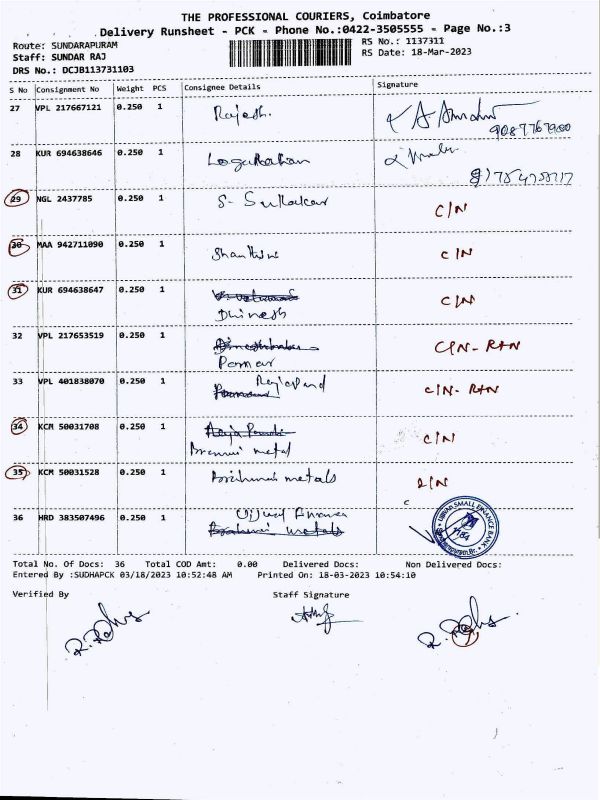 THE PROFESSIONAL COURIERS, Coimbatore
Delivery Runsheet - PCK - Phone No.:0422-3505555 - Page No.:3
Route: SUNDARAPURAM RS No.: 1137311
Staff: SUNDAR RAJ RS Date: 18-Mar-2023
DRS No.: DCJB113731103
S No Consignment No Weight PCS Consignee Details Signature
27 VPL 217667121 0.250 1 Rajesh.
9087767900
28 KUR 694638646 0.250 1
29 NGL 2437785 0.250 1 S- C/N
30 MAA 942711090 0.250 1 Shanthini C/N
31 KUR 694638647 0.250 1 C/N
Dhinesh
32 VPL 217653519 0.250 1 C/N- RTN
33 VPL 401838070 0.250 1 C/N- RTN
34 KCM 50031708 0.250 1 C/N
metal
35 KCM 50031528 0.250 1 metals C/N
36 HRD 383507496 0.250 1 metals
SMALL FINANCE BANK
Total No. Of Docs: 36 Total COD Amt: 0.00 Delivered Docs: Non Delivered Docs:
Entered By :SUDHAPCK 03/18/2023 10:52:48 AM Printed On: 18-03-2023 10:54:10
Verified By Staff Signature